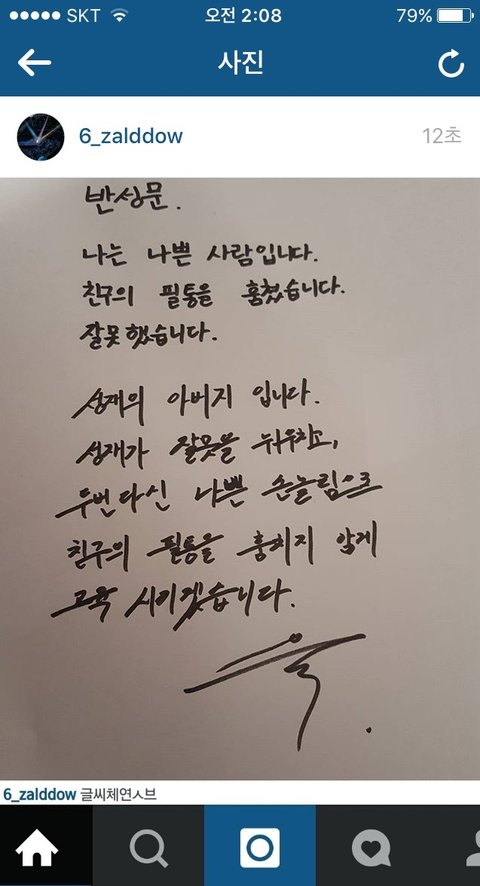 SKT 오전 2:08 79%
사진
6_zalddow 12초
반성문.
나는 나쁜 사람입니다.
친구의 필통을 훔쳤습니다.
잘못했습니다.
성재의 아버지 입니다.
성재가 잘못을 뉘우치고,
두번다신 나쁜 손놀림으로
친구의 필통을 훔치지 않게
교육 시키겠습니다.
6_zalddow 글씨체연ㅅ브